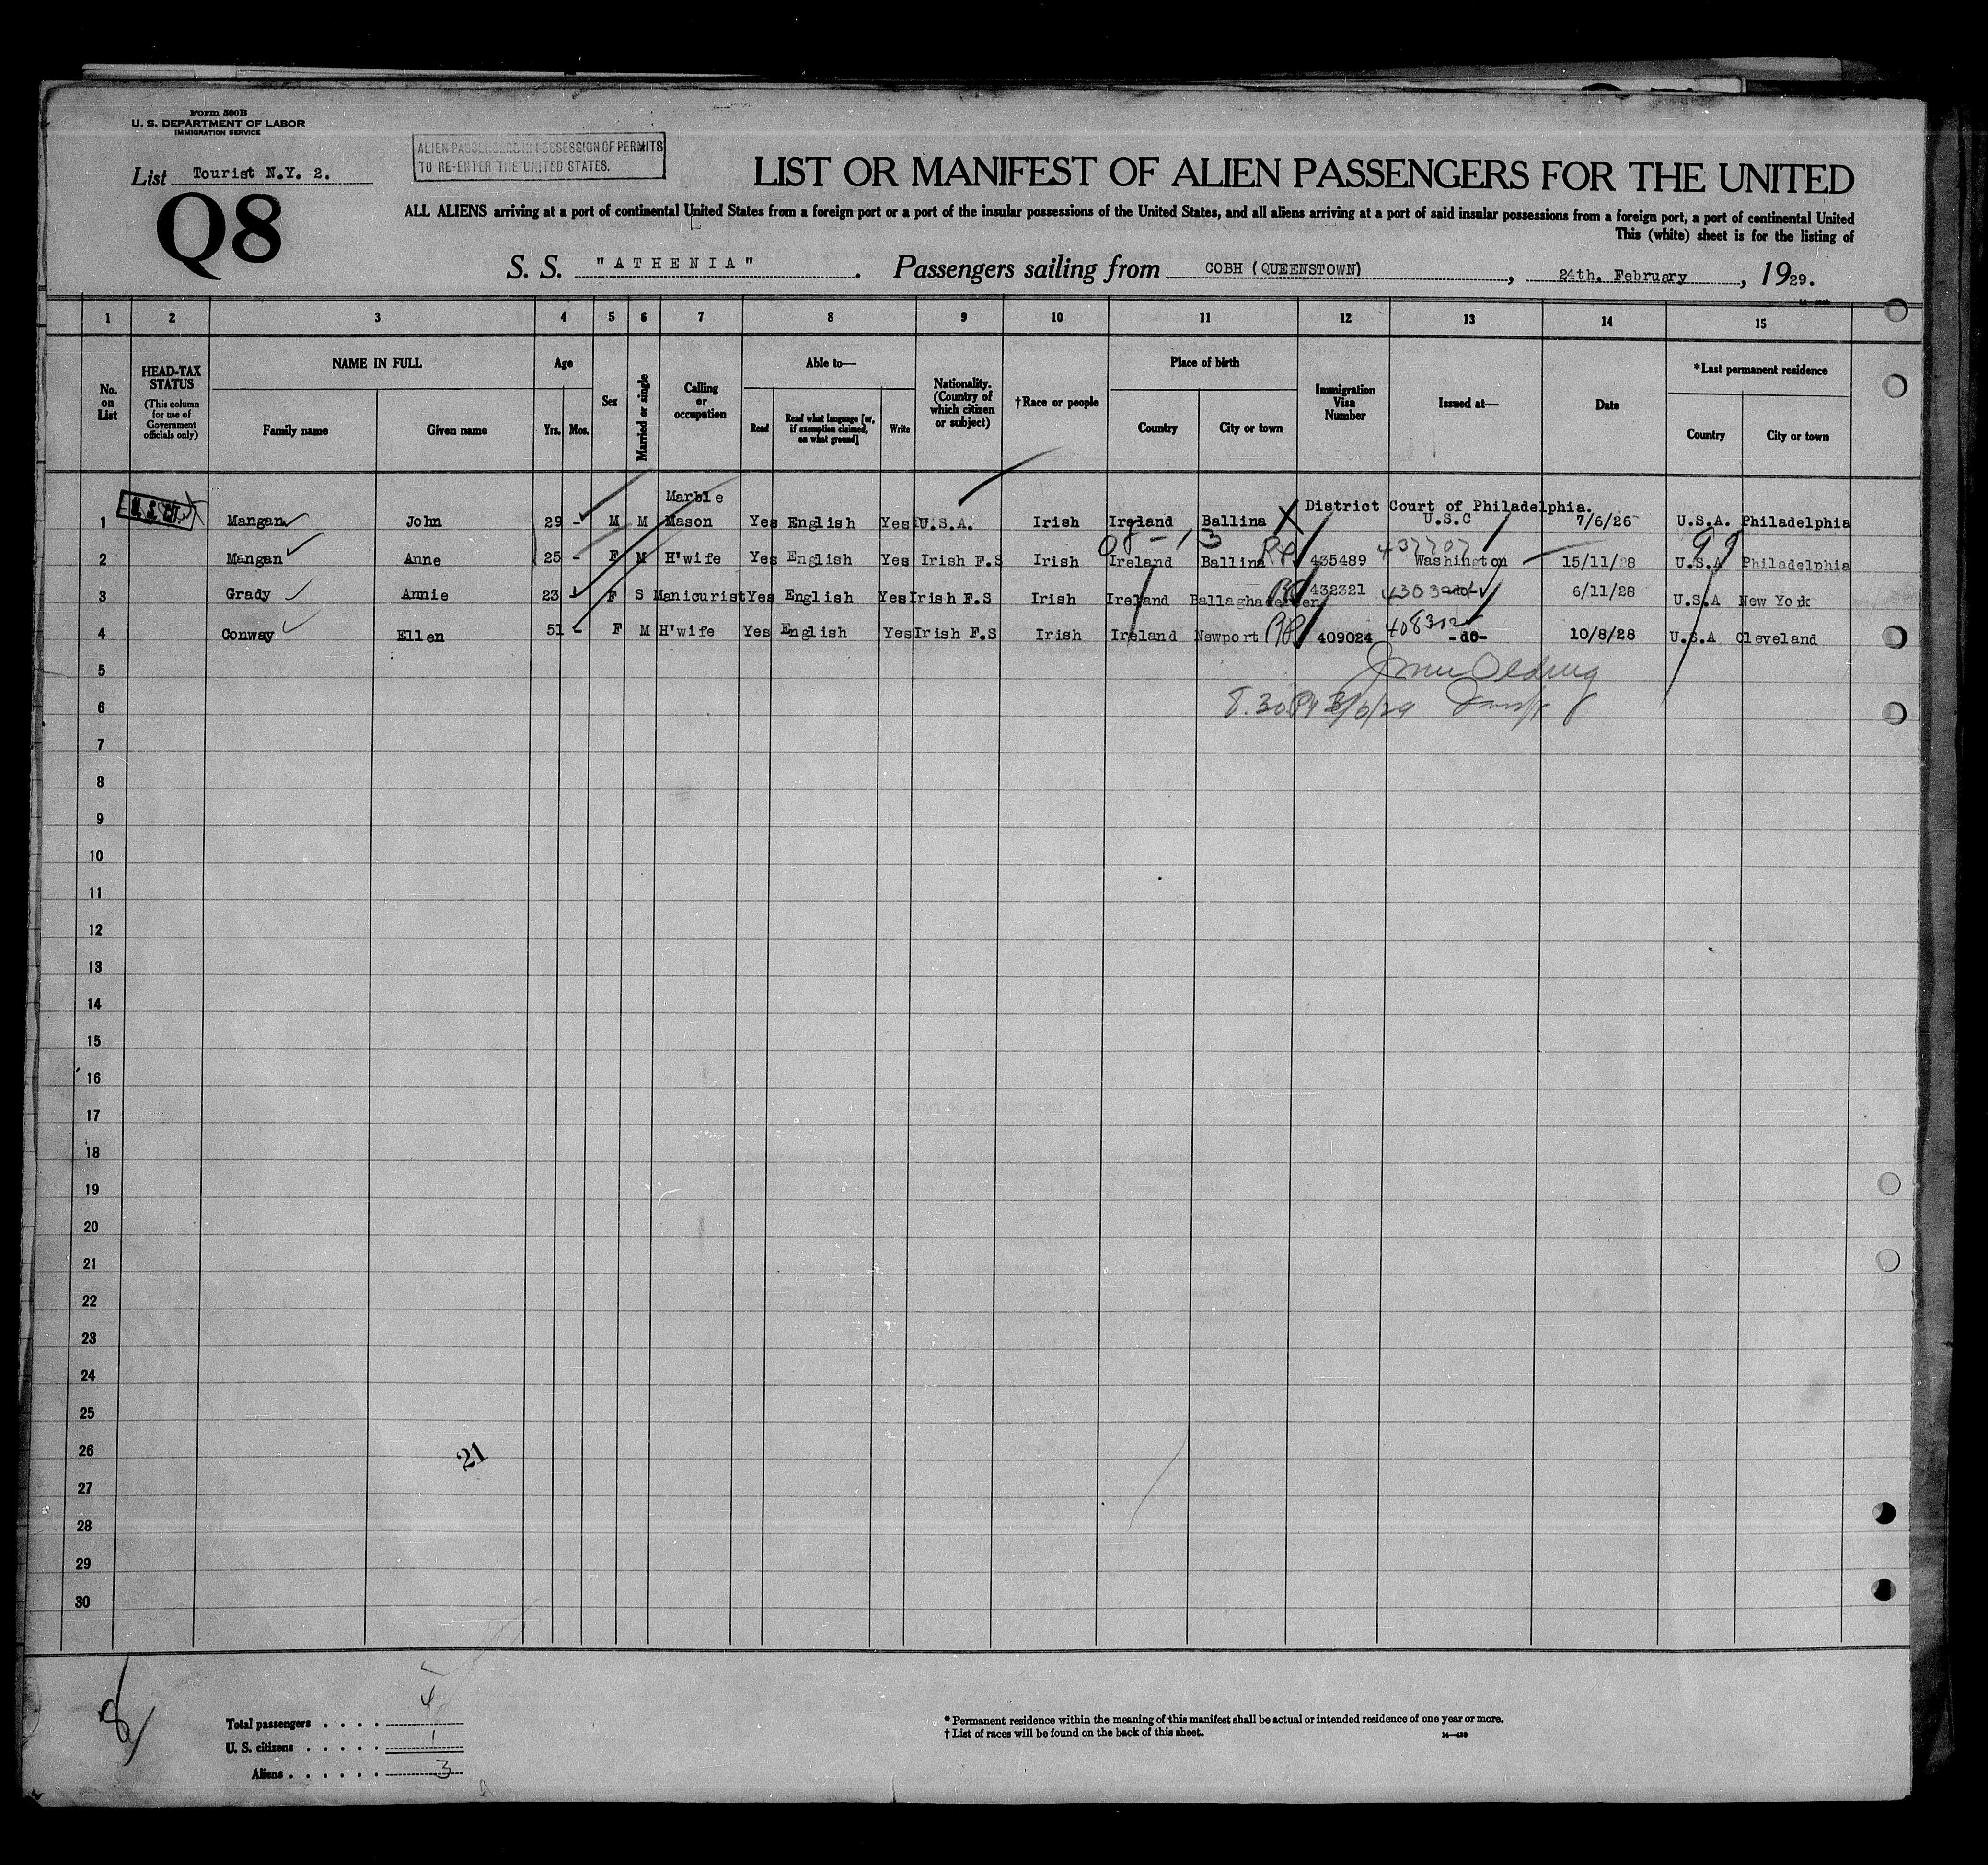 Form 500B
U. S. DEPARTMENT OF LABOR
IMMIGRATION SERVICE
ALIEN PASSENGERS IN POSSESSION OF PERMITS
TO RE-ENTER THE UNITED STATES.
List Tourist N.Y. 2.
Q8
LIST OR MANIFEST OF ALIEN PASSENGERS FOR THE UNITED
ALL ALIENS arriving at a port of continental United States from a foreign port or a port of the insular possessions of the United States, and all aliens arriving at a port of said insular possessions from a foreign port, a port of continental United
This (white) sheet is for the listing of
S. S. "ATHENIA". Passengers sailing from COBH (QUEENSTOWN), 24th. February, 1929.
1 2 3 4 5 6 7 8 9 10 11 12 13 14 15
No. on List
HEAD-TAX STATUS (This column for use of Government officials only)
NAME IN FULL
Family name Given name
Age
Yrs. Mos.
Sex
Married or single
Calling or occupation
Able to—
Read Read what language [or, if exemption claimed, on what ground] Write
Nationality. (Country of which citizen or subject)
†Race or people
Place of birth
Country City or town
Immigration Visa Number
Issued at—
Date
*Last permanent residence
Country City or town
Marble District Court of Philadelphia.
1 Mangan John 29 - M M Mason Yes English Yes U.S.A. Irish Ireland Ballina U.S.C 7/6/26 U.S.A. Philadelphia
2 Mangan Anne 25 - F M H'wife Yes English Yes Irish F.S Irish Ireland Ballina 435489 437707 Washington 15/11/28 U.S.A Philadelphia
3 Grady Annie 23 F S Manicurist Yes English Yes Irish F.S Irish Ireland Ballaghadereen 432321 -do- 6/11/28 U.S.A New York
4 Conway Ellen 51 - F M H'wife Yes English Yes Irish F.S Irish Ireland Newport 409024 -do- 10/8/28 U.S.A Cleveland
5
6 8.30
7
8
9
10
11
12
13
14
15
16
17
18
19
20
21
22
23
24
25
26
21
27
28
29
30
8
Total passengers . . . . 4
U. S. citizens . . . . . 1
Aliens . . . . . . 3
* Permanent residence within the meaning of this manifest shall be actual or intended residence of one year or more.
† List of races will be found on the back of this sheet.